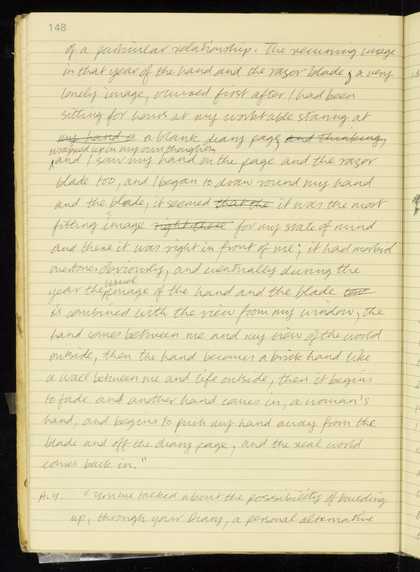 148
of a particular relationship. The recurring image
in that year of the hand and the razor blade, a very
lonely image, occurred first after I had been
sitting for hours at my worktable staring at
my hand a a blank diary page, and thinking,
wrapped up in my own thoughts,
and I saw my hand on the page and the razor
blade too, and I began to draw round my hand
and the blade, it seemed that the it was the most
fitting image right there for my state of mind
and there it was right in front of me; it had morbid
overtones obviously, and eventually during the
visual
year the image of the hand and the blade
is combined with the view from my window, the
hand comes between me and my view of the world
outside, then the hand becomes a brick hand like
a wall between me and life outside, then it begins
to fade and another hand comes in, a woman's
hand, and begins to push my hand away from the
blade and off the diary page, and the real world
comes back in."
"You've talked about the possibility of building
up, through your Diary, a personal alternative